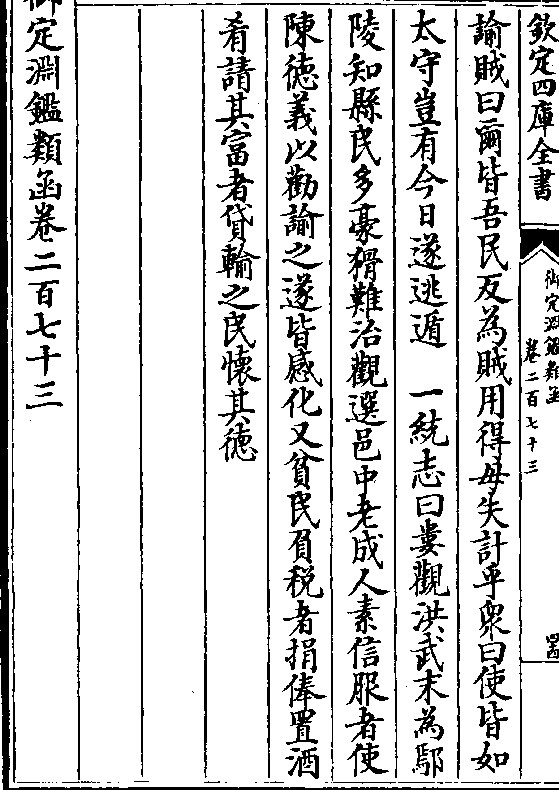 欽定四庫全書
御定淵鑑類函
卷二百七十三
諭賊曰爾皆吾民反為賊用得毋失計乎衆曰使皆如
太守豈有今日遂逃遁　一統志曰婁觀洪武末為鄢
陵知縣民多豪猾難治觀選邑中老成人素信服者使
陳德義以勸諭之遂皆感化又貧民負税者捐俸置酒
肴請其富者貸輸之民懷其德
御定淵鑑類函卷二百七十三